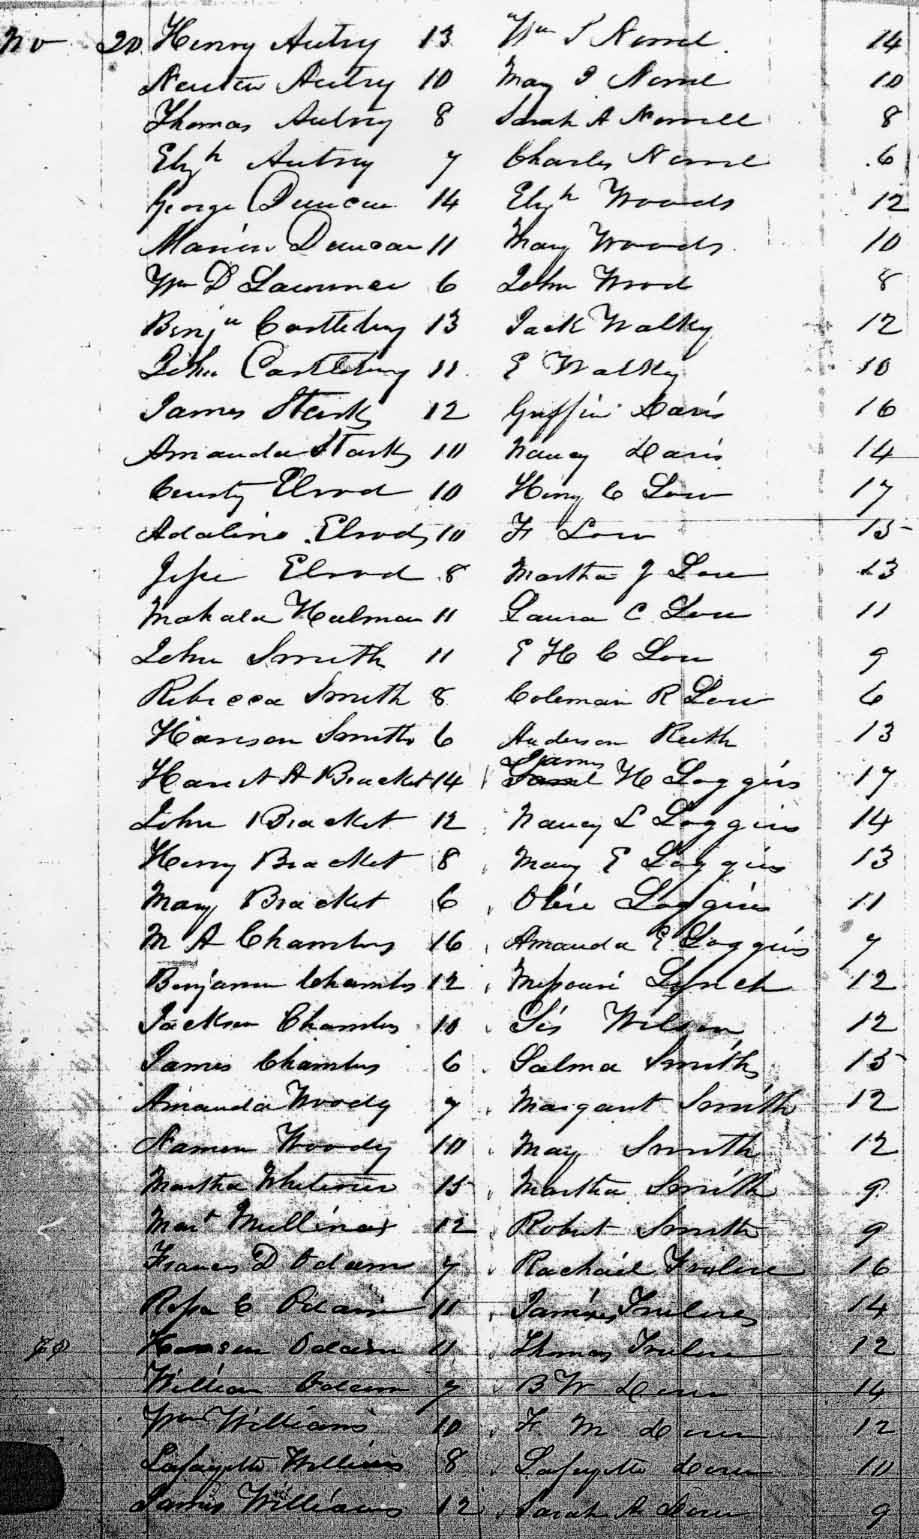 no 20 Henry Autry 13 Wm S Norrel 14
Newton Autry 10 May J Norrel 10
Thomas Autry 8 Sarah A Norrell 8
Elizh Autry 7 Charles Norrel 6
George Duncan 14 Elizh Woods 12
Marion Duncan 11 May Woods 10
Wm D Lawrence 6 John Wood 8
Benjn Castlebury 13 Jack Walky 12
John Castlebury 11 E Walky 10
James Stark 12 Griffin Davis 16
Amanda Stark 10 Nancy Davis 14
Elrod 10 Henry C Low 17
Adaline Elrod 10 F Low 15
Jesse Elrod 8 Martha J Low 13
Mahala Holman 11 Laura C Low 11
John Smith 11 E H C Low 9
Rebecca Smith 8 Coleman R Low 6
Harison Smith 6 Anderson 13
James
Haret A Bracket 14 H Loggins 17
John Bracket 12 Nancy L Loggins 14
Henry Bracket 8 Mary E Loggins 13
Mary Bracket 6 Loggins 11
M A Chambers 16 Amanda E Loggins 7
Benjamin Chambers 12 Missouri Lynch 12
Jackson Chambers 10 Wilson 12
James Chambers 6 Salma Smith 15
Amanda Woody 7 Margaret Smith 12
Woody 10 May Smith 12
Martha 15 Martha Smith 9
Mart Mullinax 12 Robert Smith 9
Frances D Odam 7 Rachael 16
Rosa C Odam 11 14
Odam 11 Thomas 12
William Odam 7 B W 14
Wm Williams 10 F M 12
Lafayette Williams 8 Lafayette 10
James Williams 12 Sarah A 9